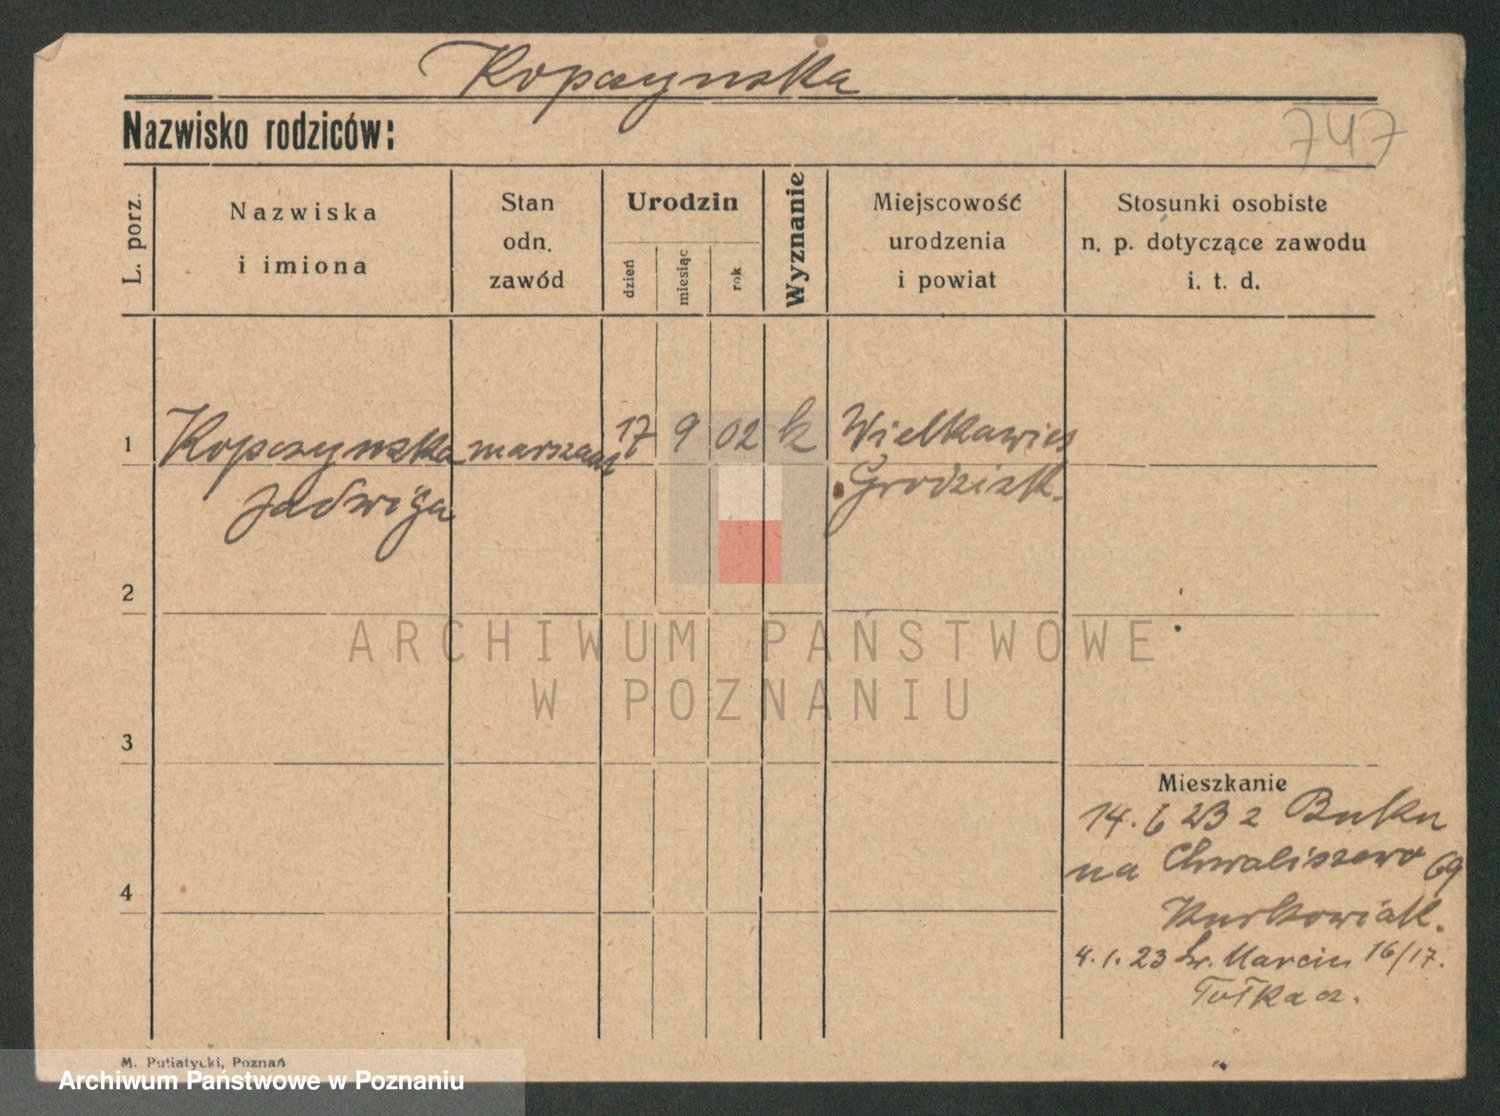 Kopczynska
Nazwisko rodziców:
747
L. porz.
Nazwiska
i imiona
Stan
odn.
zawód
Urodzin
dzień
miesiąc
rok
Wyznanie
Miejscowość
urodzenia
i powiat
Stosunki osobiste
n. p. dotyczące zawodu
i. t. d.
1 Kopczynska 17 9 02 k Wielkawieś
Jadwiga Grodzisk.
2
ARCHIWUM PAŃSTWOWE
W POZNANIU
3
Mieszkanie
14. 6 23 z Buku
na Chwaliszewo 69
Kurkowiak.
4
4. 1. 23 Św. Marcin 16/17.
M. Putiatycki, Poznań
Archiwum Państwowe w Poznaniu